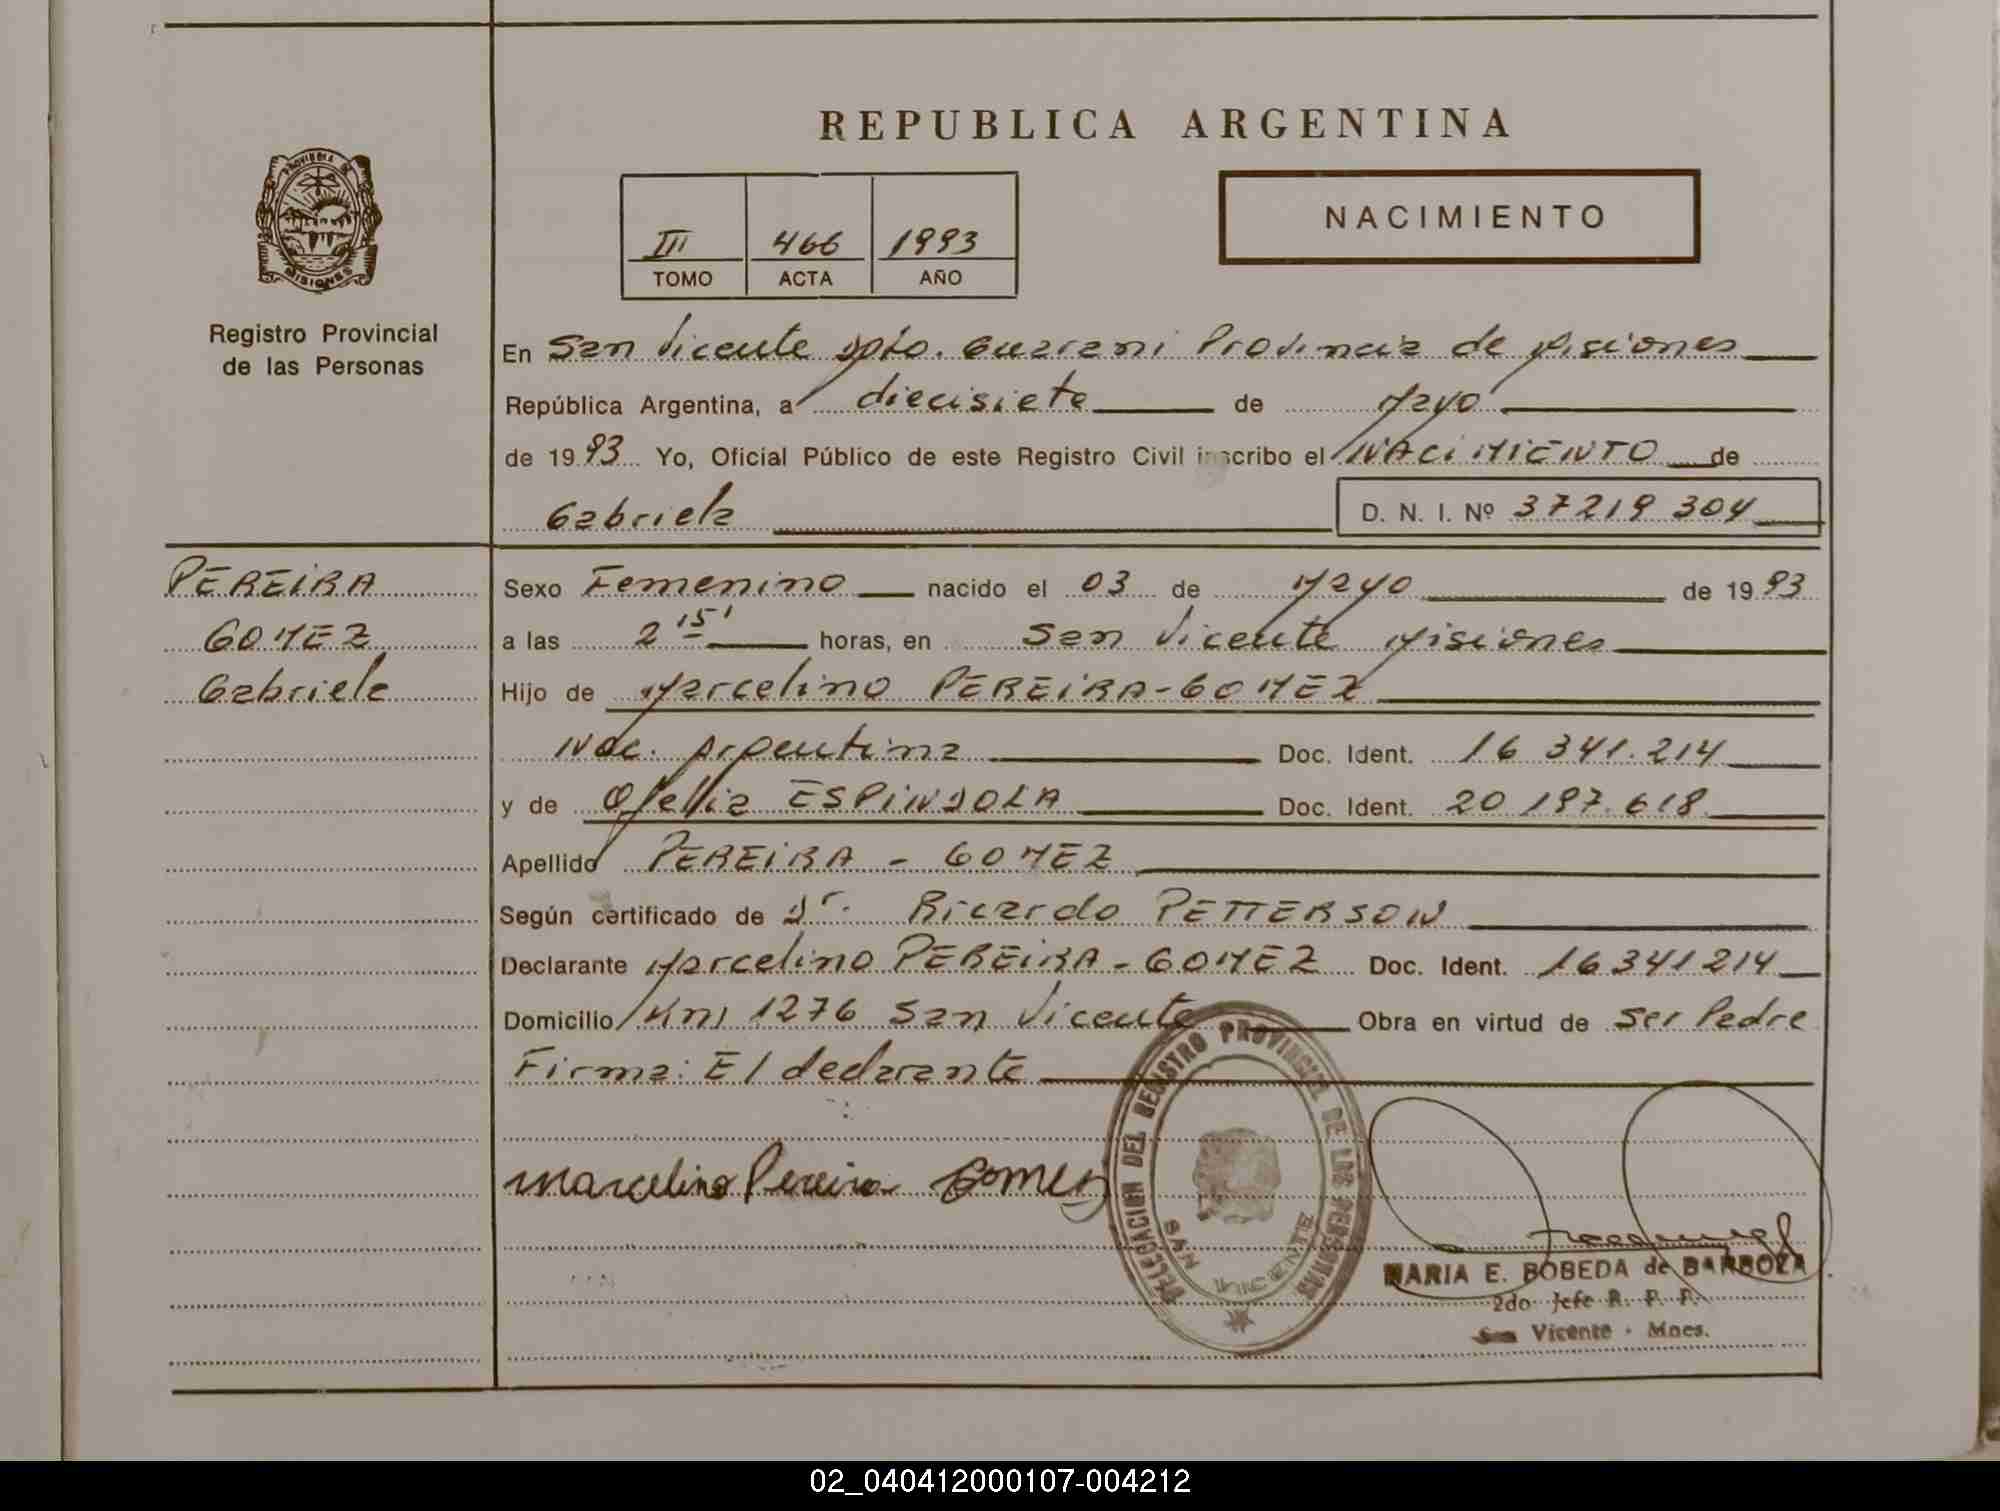 REPUBLICA ARGENTINA
PROVINCIA DE
MISIONES
Registro Provincial
de las Personas
III 466 1993
TOMO ACTA AÑO
NACIMIENTO
En San Vicente Dpto. Guarani Provincia de Misiones
República Argentina, a diecisiete de Mayo
de 1993 Yo, Oficial Público de este Registro Civil inscribo el NACIMIENTO de
Gabriela D. N. I. Nº 37219304
PEREIRA
GOMEZ
Gabriela
Sexo Femenino nacido el 03 de Mayo de 1993
a las 2 15' horas, en San Vicente Misiones
Hijo de Marcelino PEREIRA-GOMEZ
Nac. Argentina Doc. Ident. 16 341.214
y de Ofelia ESPINDOLA Doc. Ident. 20 197.618
Apellido PEREIRA - GOMEZ
Según certificado de Dr. Ricardo PETTERSON
Declarante Marcelino PEREIRA-GOMEZ Doc. Ident. 16341214
Domicilio Km 1276 San Vicente Obra en virtud de Ser Padre
Firma: El declarante
Marcelino Pereira Gomez
DELEGACION DEL REGISTRO PROVINCIAL DE LAS PERSONAS
SAN VICENTE
MARIA E. BOBEDA de BARBOZA
2do Jefe R. P. P.
San Vicente - Mnes.
02_040412000107-004212